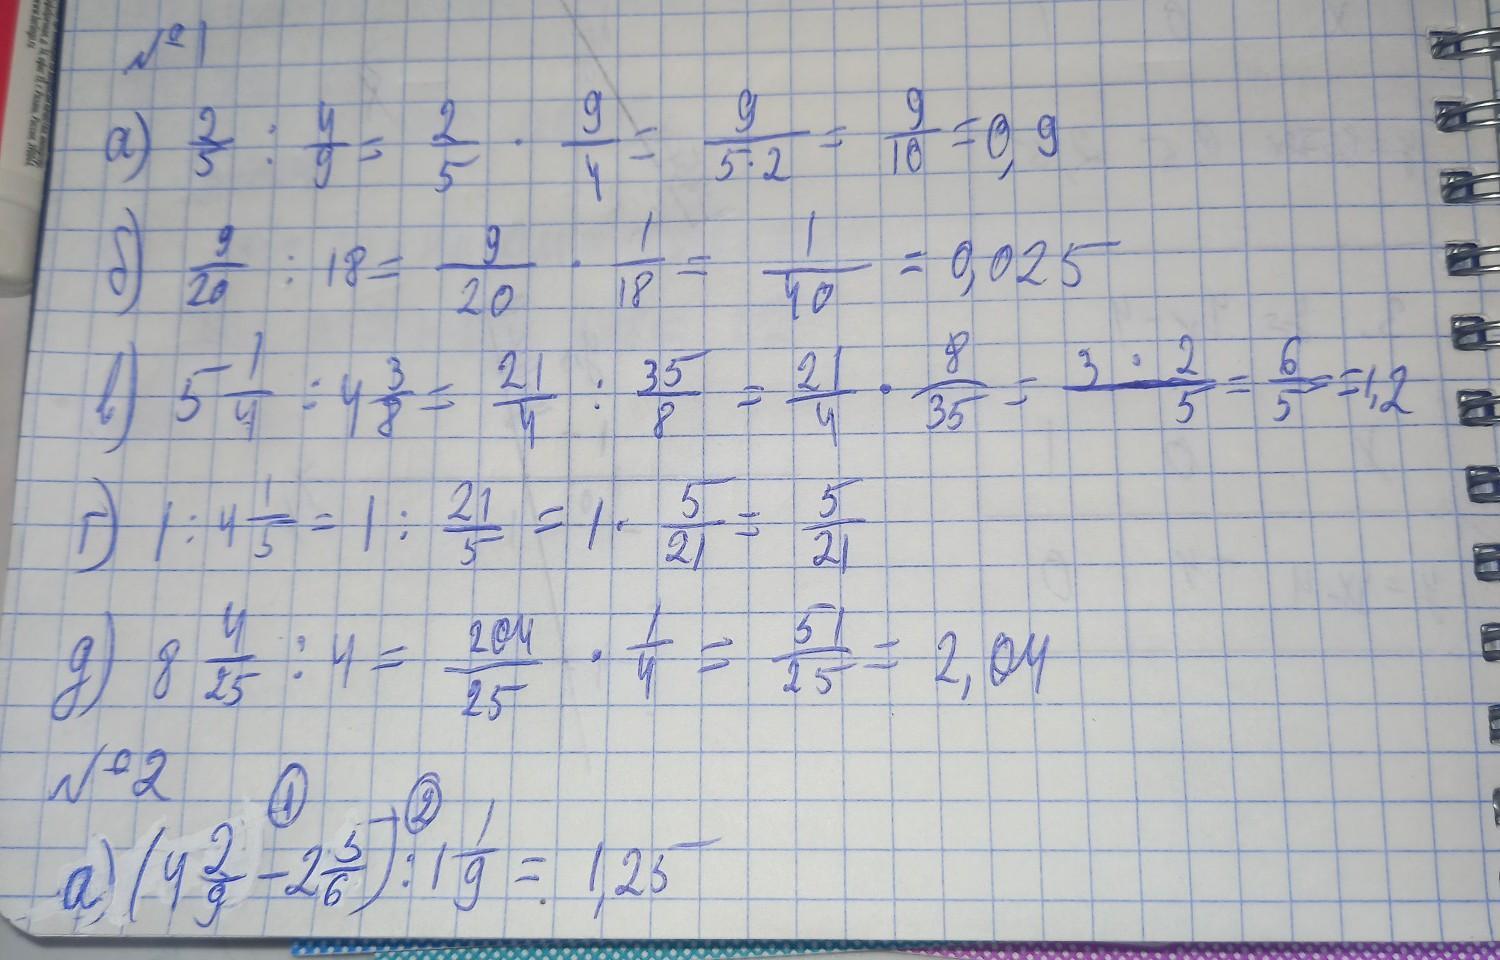 №1
а) 2/5 : 4/9 = 2/5 · 9/4 = 9/(5·2) = 9/10 = 0,9
б) 9/20 : 18 = 9/20 · 1/18 = 1/40 = 0,025
в) 5 1/4 : 4 3/8 = 21/4 : 35/8 = 21/4 · 8/35 = (3 · 2)/5 = 6/5 = 1,2
г) 1 : 4 1/5 = 1 : 21/5 = 1 · 5/21 = 5/21
д) 8 4/25 : 4 = 204/25 · 1/4 = 51/25 = 2,04
№2
① ②
а) (4 2/9 - 2 5/6) : 1 1/9 = 1,25